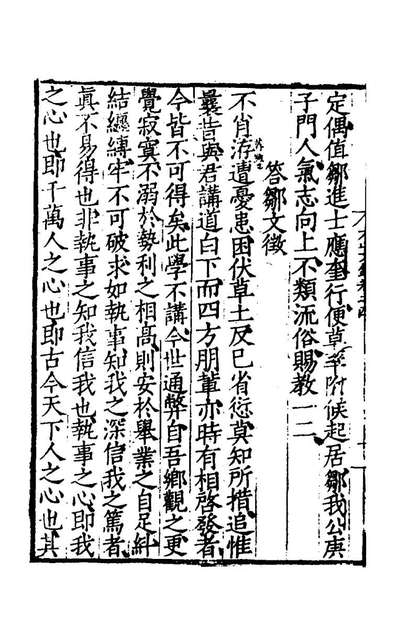 定偶值鄒進士應奎行便草率附候起居鄒我公庚
子門人氣志向上不類流俗賜教一二
答鄒文徵
不肖洊遭憂患困伏草土反己省愆莫知所措追惟
曩昔與君講道白下而四方朋輩亦時有相啓發者
今皆不可得矣此學不講今世通弊自吾鄉觀之更
覺寂寞不溺於勢利之相高則安於舉業之自足糾
結纏縛牢不可破求如執事知我之深信我之篤者
真不易得也非執事之知我信我也執事之心即我
之心也即千萬人之心也即古今天下人之心也其